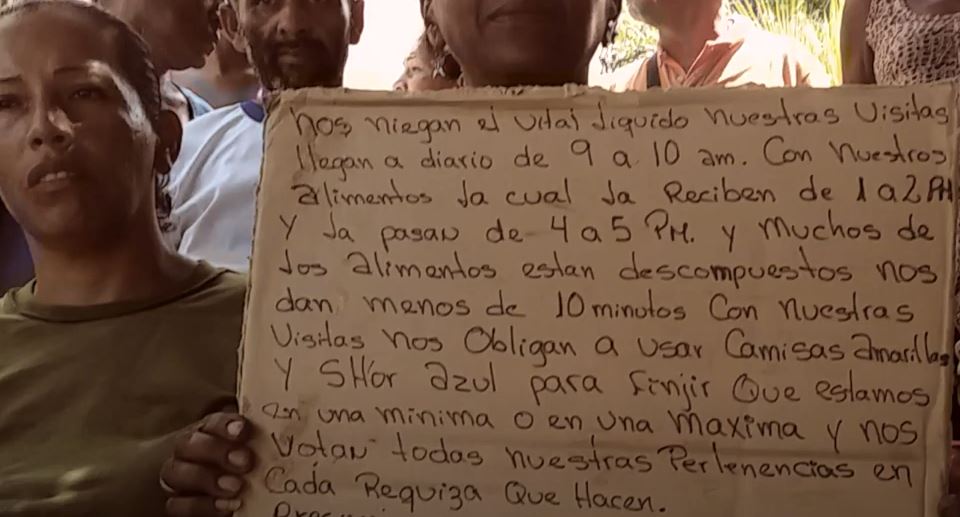 nos niegan el vital liquido nuestras Visitas
llegan a diario de 9 a 10 am. Con nuestros
alimentos la cual la Reciben de 1 a 2 PM
y la pasan de 4 a 5 PM. y muchos de
los alimentos estan descompuestos nos
dan menos de 10 minutos Con nuestras
Visitas nos Obligan a usar Camisas amarillas
y SHor azul para finjir Que estamos
en una minima o en una maxima y nos
Votan todas nuestras Pertenencias en
Cada Requiza Que Hacen.